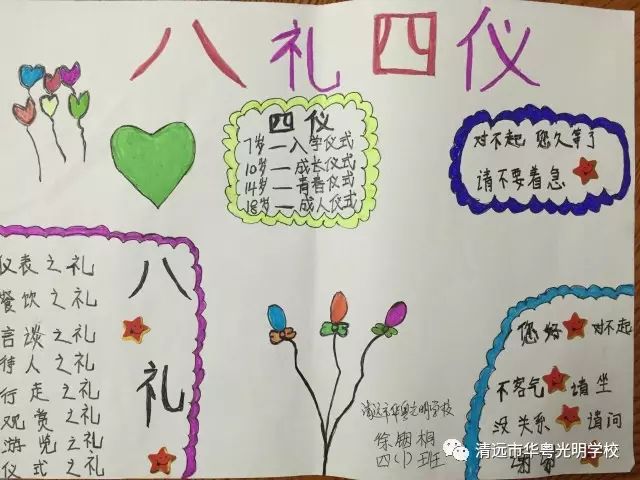 八礼四仪
四仪
7岁—入学仪式
10岁—成长仪式
14岁—青春仪式
18岁—成人仪式
对不起 您久等了
请不要着急
八礼
仪表之礼
餐饮之礼
言谈之礼
待人之礼
行走之礼
观赏之礼
游览之礼
仪式之礼
您好 对不起
不客气 请坐
没关系 请问
谢谢
清远市华粤光明学校
相
四(1)班
清远市华粤光明学校